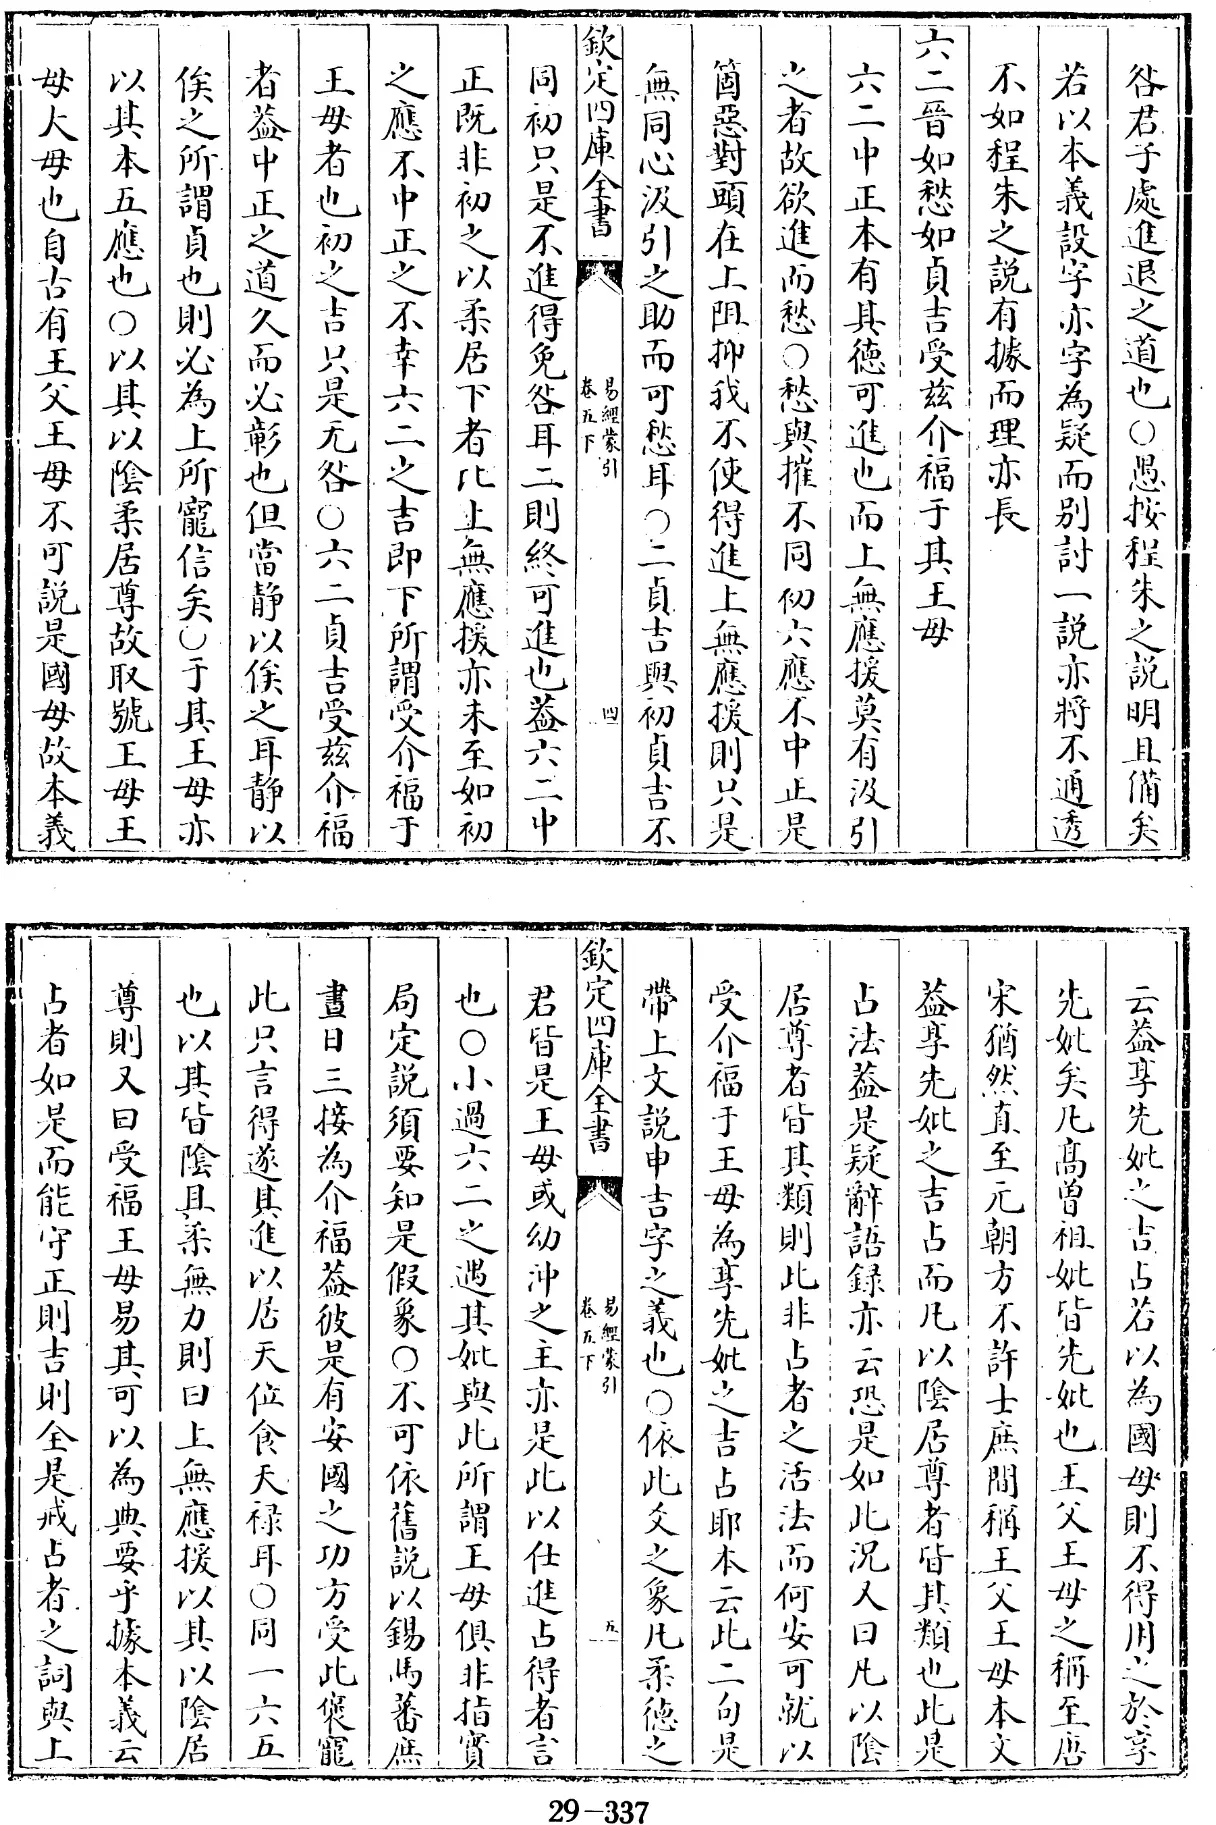 咎君子處進退之道也〇愚按程朱之説明且備矣
若以本義設字亦字為疑而别討一説亦將不通透
不如程朱之説有據而理亦長
六二晉如愁如貞吉受兹介福于其王母
六二中正本有其德可進也而上無應援莫有汲引
之者故欲進而愁〇愁與摧不同初六應不中正是
箇惡對頭在上阻抑我不使得進上無應援則只是
無同心汲引之助而可愁耳〇二貞吉與初貞吉不
欽定四庫全書
易經蒙引
卷五下
四
同初只是不進得免咎耳二則終可進也葢六二中
正既非初之以柔居下者比上無應援亦未至如初
之應不中正之不幸六二之吉即下所謂受介福于
王母者也初之吉只是无咎〇六二貞吉受兹介福
者葢中正之道久而必彰也但當静以俟之耳静以
俟之所謂貞也則必為上所寵信矣〇于其王母亦
以其本五應也〇以其以陰柔居尊故取號王母王
母大母也自古有王父王母不可説是國母故本義
云葢享先妣之吉占若以為國母則不得用之於享
先妣矣凡髙曾祖妣皆先妣也王父王母之稱至唐
宋猶然直至元朝方不許士庶間稱王父王母本文
葢享先妣之吉占而凡以陰居尊者皆其類也此是
占法葢是疑辭語録亦云恐是如此况又曰凡以陰
居尊者皆其類則此非占者之活法而何安可就以
受介福于王母為享先妣之吉占耶本云此二句是
帶上文説申吉字之義也〇依此爻之象凡柔德之
欽定四庫全書
易經蒙引
卷五下
五
君皆是王母或幼沖之主亦是此以仕進占得者言
也〇小過六二之遇其妣與此所謂王母俱非指實
局定説須要知是假象〇不可依舊説以錫馬蕃庶
晝日三接為介福葢彼是有安國之功方受此褒寵
此只言得遂其進以居天位食天禄耳〇同一六五
也以其皆陰且柔無力則曰上無應援以其以陰居
尊則又曰受福王母易其可以為典要乎據本義云
占者如是而能守正則吉則全是戒占者之詞與上
29-337